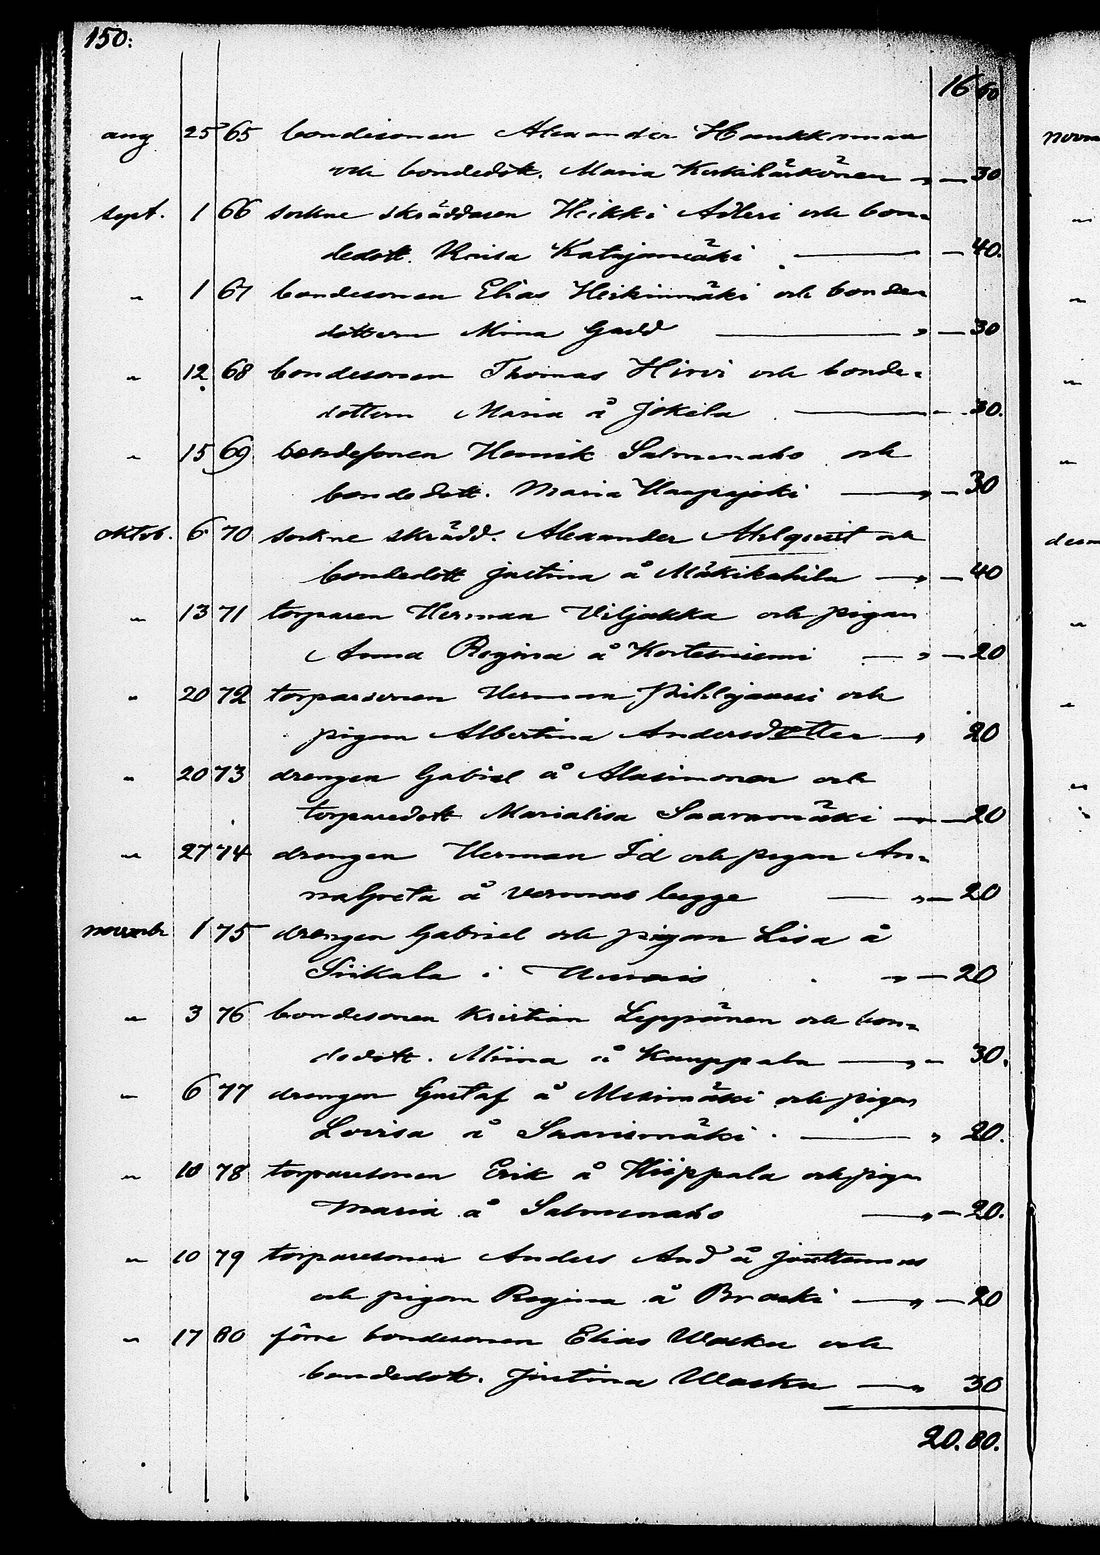 150.
16 60
aug 25 65 bondesonen Alexander Haukkamaa
och bondedott. Maria Koskihärkönen " — 30
sept. 1 66 sockne skräddaren Heikki Adleri och bon=
dedott. Kaisa Katajamäki — 40.
" 1 67 bondesonen Elias Heikinmäki och bonde=
dottern Mina Gadd " — 30
" 12 68 bondesonen Thomas Hirvi och bonde=
dottern Maria å Jokila — 30.
" 15 69 bondesonen Henrik Salmenaho och
bondedott. Maria Haapajoki " — 30
oktob. 6 70 sockne skrädd. Alexander Ahlqvist och
bondedott Justina å Mäkikahila " — 40
" 13 71 torparen Herman Viljakka och pigan
Anna Regina å Kortesniemi " — 20
" 20 72 torparsonen Herman Pihlajaniemi och
pigan Albertina Andersdotter — " 20
" 20 73 drengen Gabriel å Alasimonen och
torparedott Marialisa Saaramäki " — 20
" 27 74 drengen Herman Id och pigan An=
naGreta å Vermas bygge " — 20
novemb 1 75 drengen Gabriel och pigan Lisa å
Siikala i " — 20
" 3 76 bondesonen Kristian Leppänen och bon=
dedott. Miina å Kauppala " — 30.
" 6 77 drengen Gustaf å Metsimäki och pigan
Lovisa å Saarismäki. " 20.
" 10 78 torparesonen Erik å Hiippala och pigan
Maria å Salmenaho " — 20.
" 10 79 torparesonen Anders And å
och pigan Regina å Braski " — 20
" 17 80 förre bondesonen Elias Wasku och
bondedot. Justina Wasku — " 30
20.80.